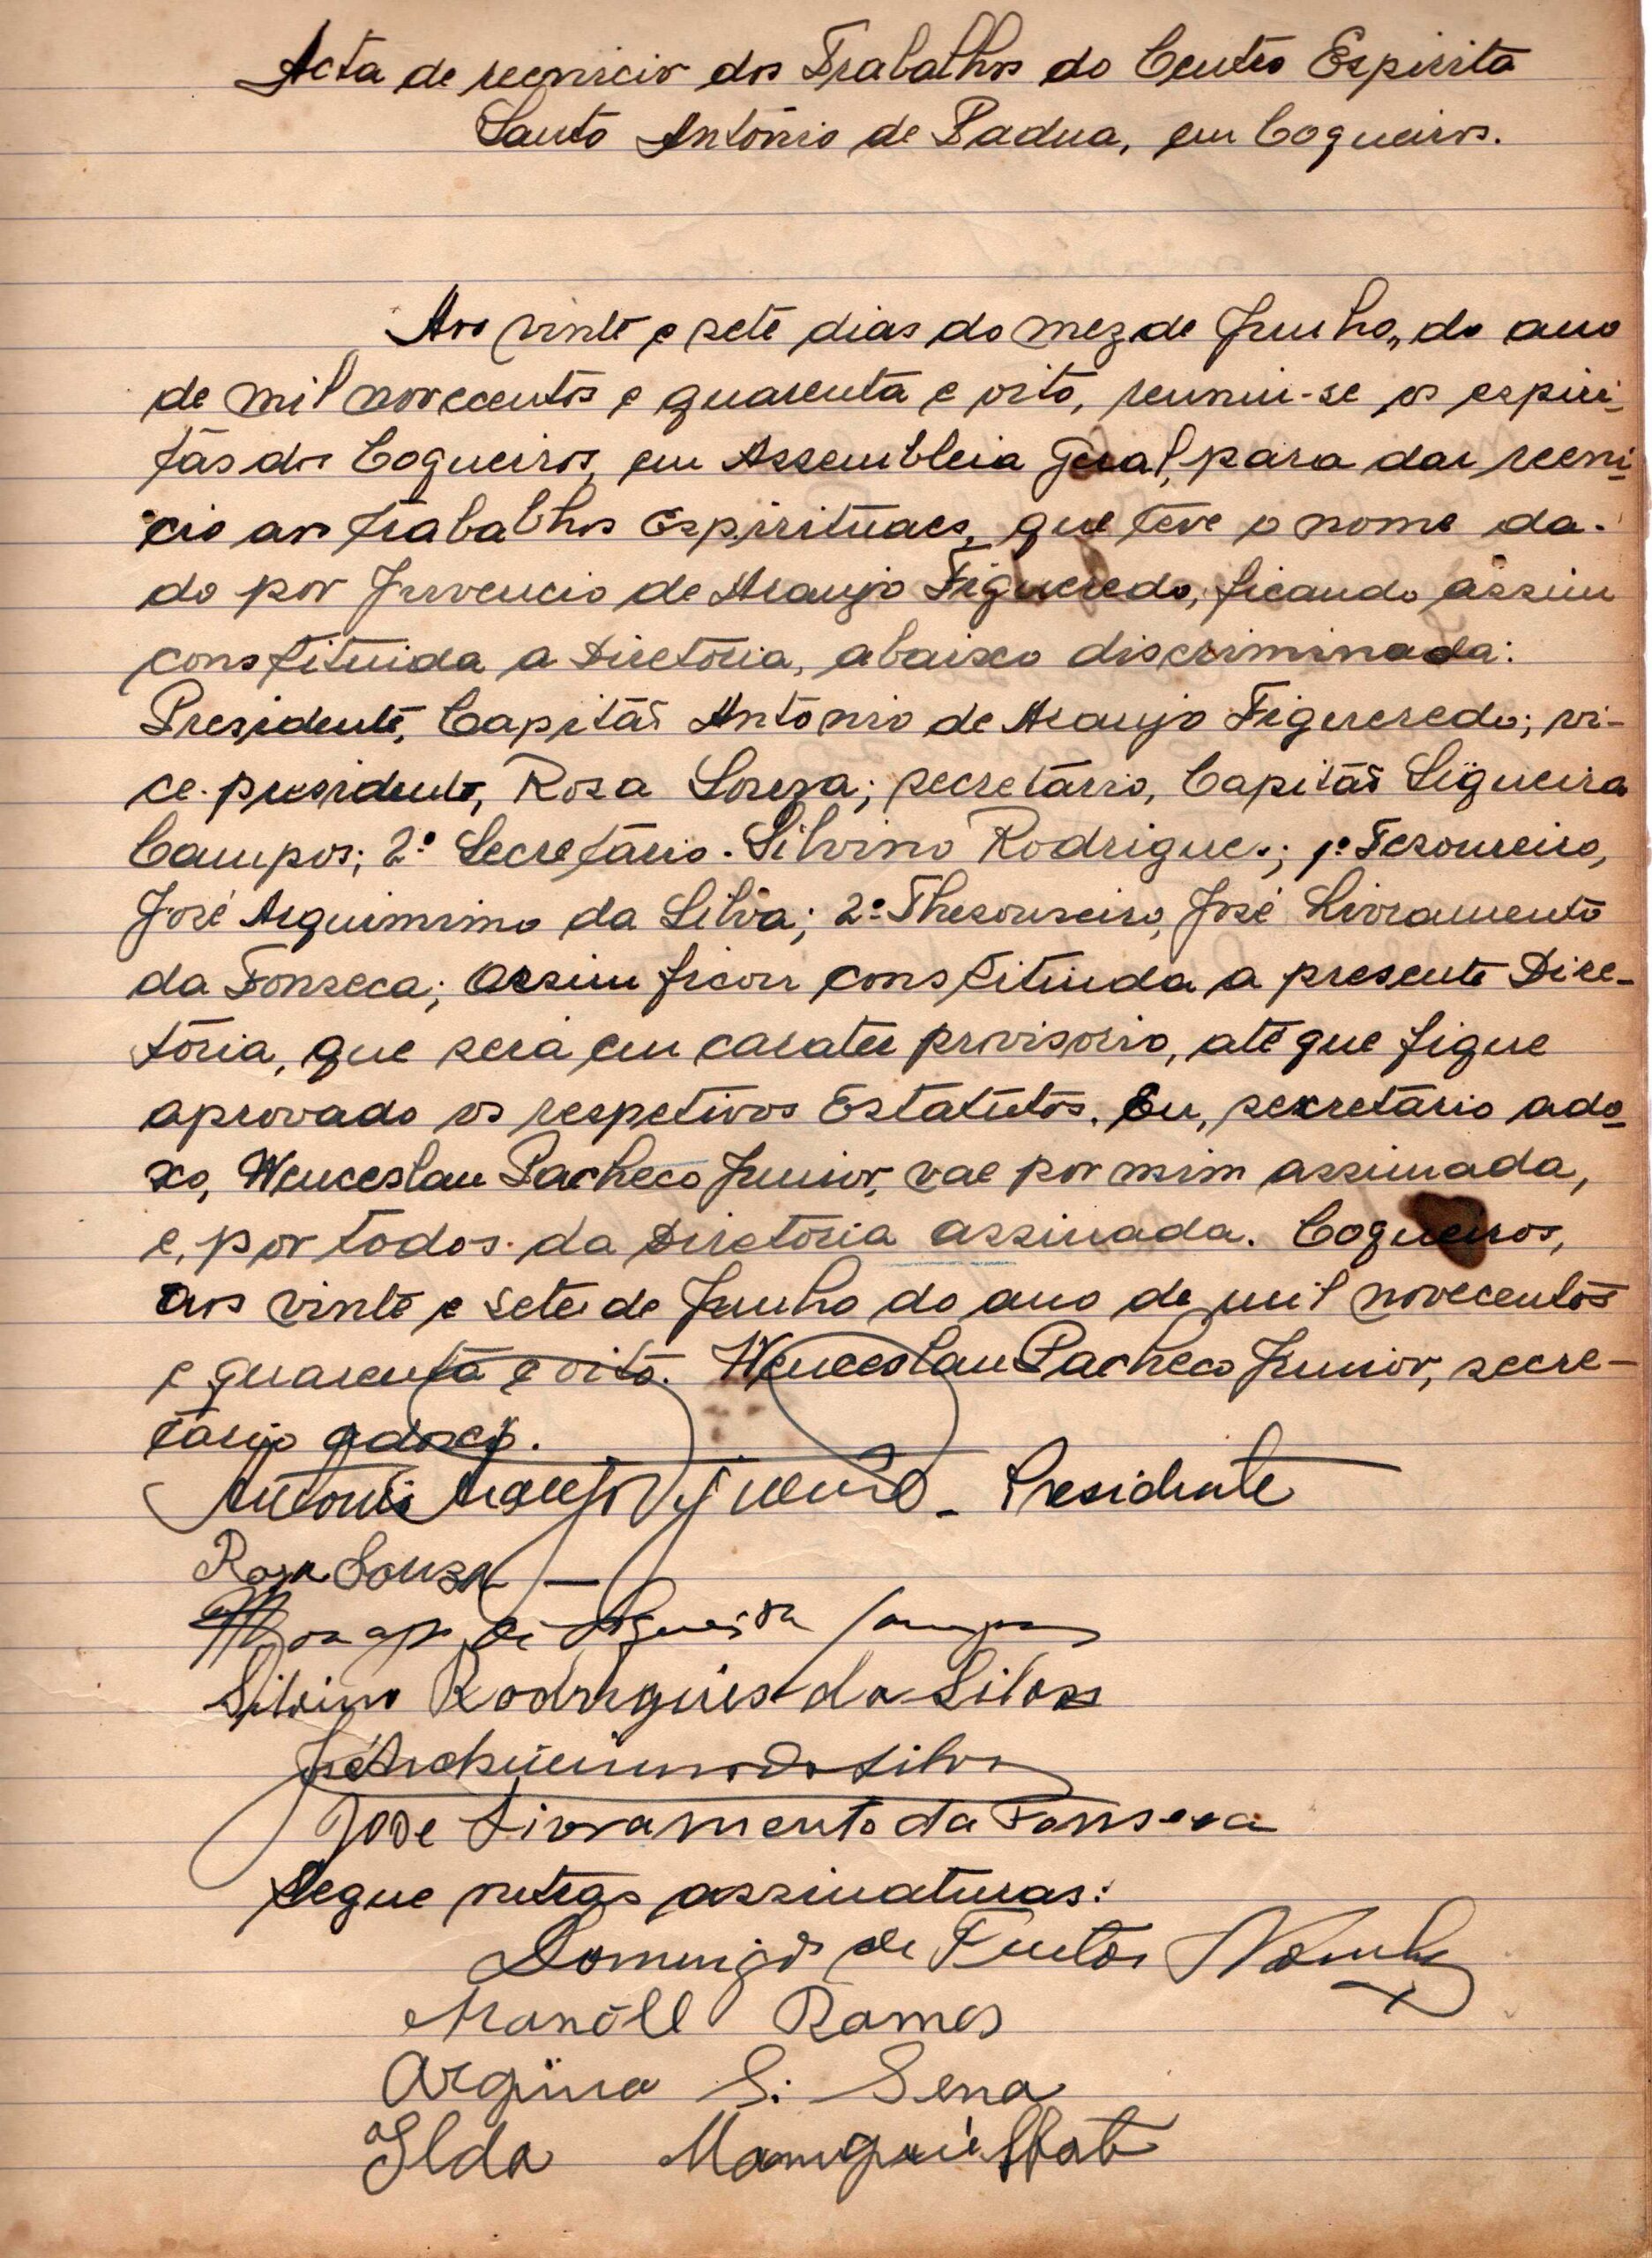 Acta de reenicio dos Trabalhos do Centro Espirita
Santo Antônio de Padua, em Coqueiros.
Aos vinte e sete dias do mez de Junho, do ano
de mil novecentos e quarenta e oito, reuniu-se os espiri-
tas dos Coqueiros, em Assembleia Geral, para dar reeni-
cio aos trabalhos Espirituaes, que teve o nome da-
do por Juvencio de Araujo Figueredo, ficando assim
constituida a Diretoria, abaixo discriminada:
Presidente, Capitão Antonio de Araujo Figueredo; vi-
ce-presidente, Rosa Souza; secretário, Capitão Siqueira
Campos; 2º Secretário. Silvino Rodrigues; 1º Tesoureiro,
José Arquimimo da Silva; 2º Thesoureiro, José Livramento
da Fonseca; assim ficou constituida a presente Dire-
tória, que será em carater provisorio, até que fique
aprovado os respetivos Estatutos. Eu, secretário ado-
xo, Wenceslau Pacheco Junior, vae por mim assinada,
e, por todos da Diretoria assinada. Coqueiros,
aos vinte e sete de Junho do ano de mil novecentos
e quarenta e oito. Wenceslau Pacheco Junior, secre-
tário adoxo.
Antonio Araujo Figueiredo - Presidente
Rosa Souza
de Siqueira Campos
Silvino Rodrigues da Silva
José da Silva
José Livramento da Fonseca
Segue outras assinaturas:
Domingos de
Manoel Ramos
Argina S. Sena
Ilda